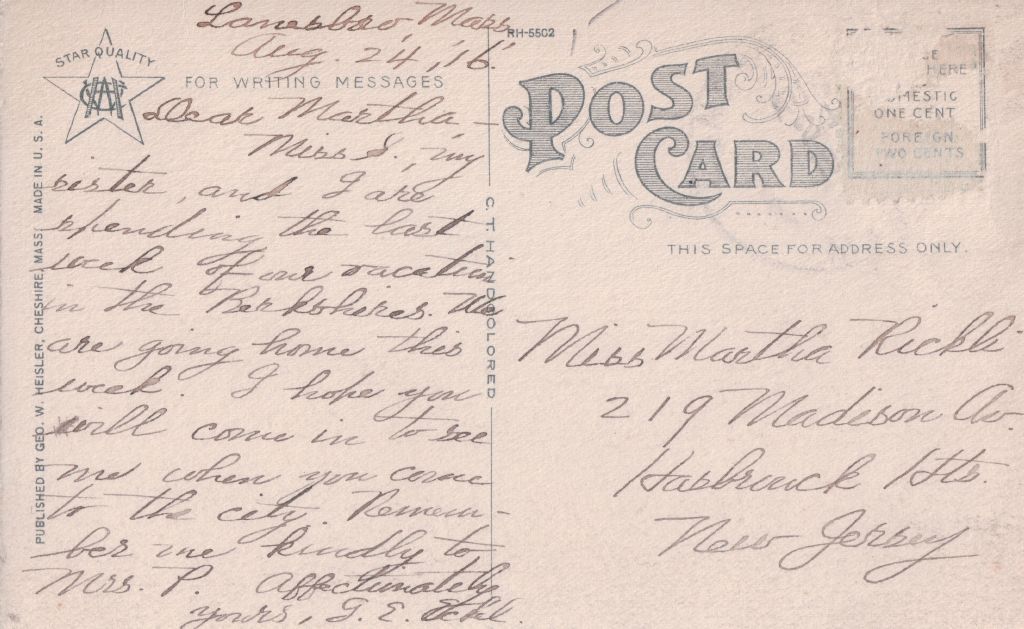 Lanesboro, Mass.
Aug. 24, '16.
STAR QUALITY
FOR WRITING MESSAGES
Dear Martha -
Miss S., my
sister, and I are
spending the last
week of our vacation
in the Berkshires. We
are going home this
week. I hope you
will come in to see
me when you come
to the city. Remem-
ber me kindly to
Mrs. P. Affectionately
yours, G. E.
PUBLISHED BY GEO. W. HEISLER, CHESHIRE, MASS. MADE IN U.S.A.
C. T. HAND COLORED
RH-5502
POST
CARD
HERE
DOMESTIC
ONE CENT
FOREIGN
TWO CENTS
THIS SPACE FOR ADDRESS ONLY.
Miss Martha Rickli
219 Madison Av.
Hasbrouck Hts.
New Jersey